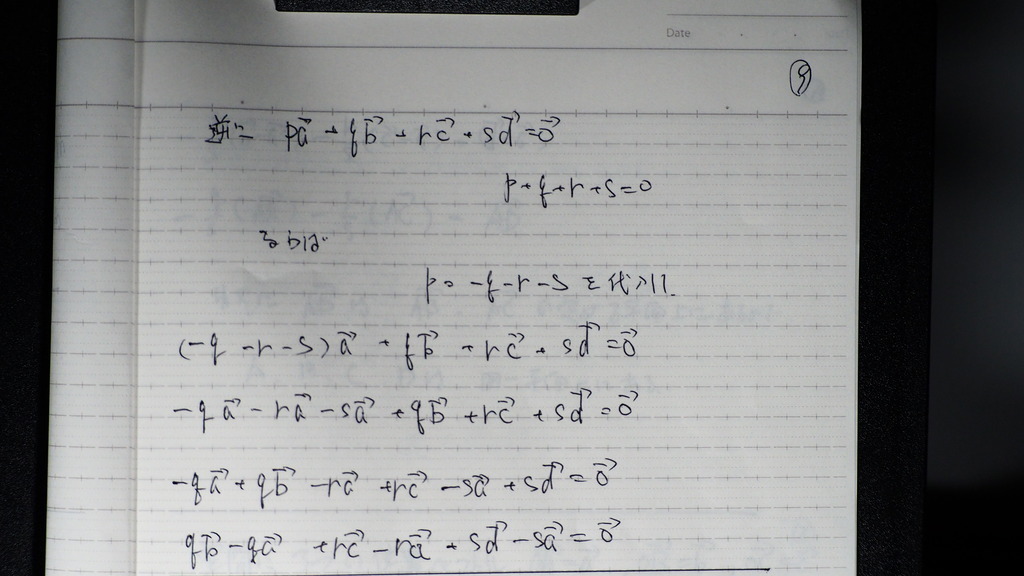 Date
⑨
逆に pa⃗ + qb⃗ + rc⃗ + sd⃗ = 0⃗
p + q + r + s = 0
ならば
p = -q - r - s を代入.
(-q - r - s)a⃗ + qb⃗ + rc⃗ + sd⃗ = 0⃗
-qa⃗ - ra⃗ - sa⃗ + qb⃗ + rc⃗ + sd⃗ = 0⃗
-qa⃗ + qb⃗ - ra⃗ + rc⃗ - sa⃗ + sd⃗ = 0⃗
qb⃗ - qa⃗ + rc⃗ - ra⃗ + sd⃗ - sa⃗ = 0⃗